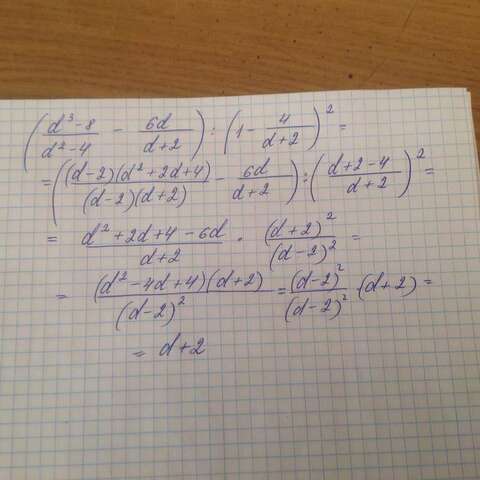 (d³-8/d²-4 - 6d/d+2) : (1 - 4/d+2)² =
= ((d-2)(d²+2d+4)/(d-2)(d+2) - 6d/d+2) : (d+2-4/d+2)² =
= d²+2d+4-6d/d+2 · (d+2)²/(d-2)² =
= (d²-4d+4)(d+2)/(d-2)² = (d-2)²/(d-2)² · (d+2) =
= d+2